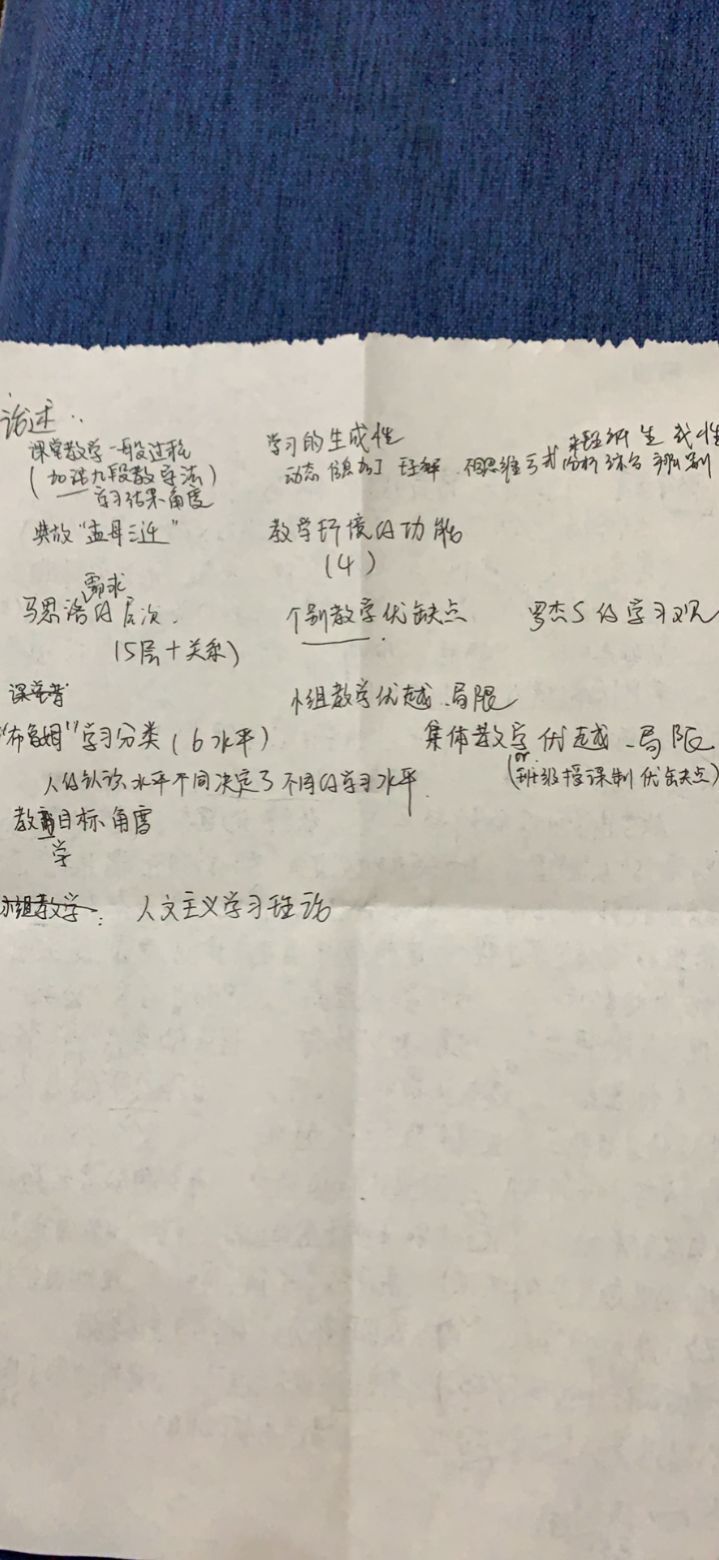 论述:
课堂教学一般过程
(加涅九段教学法)
学习结果角度
典故“孟母三迁”
学习的生成性
动态 信息加工 理解
分析 综合
教学环境的功能
(4)
需求
马思洛的层次.
(5层+关系)
个别教学优缺点.
罗杰S的学习观
小组教学优越、局限
课堂
“布鲁姆”学习分类(6水平)
集体教学 优越、局限
or
(班级授课制优缺点)
人的认识水平不同决定了不同的学习水平.
教育目标角度
学
小组教学: 人文主义学习理论